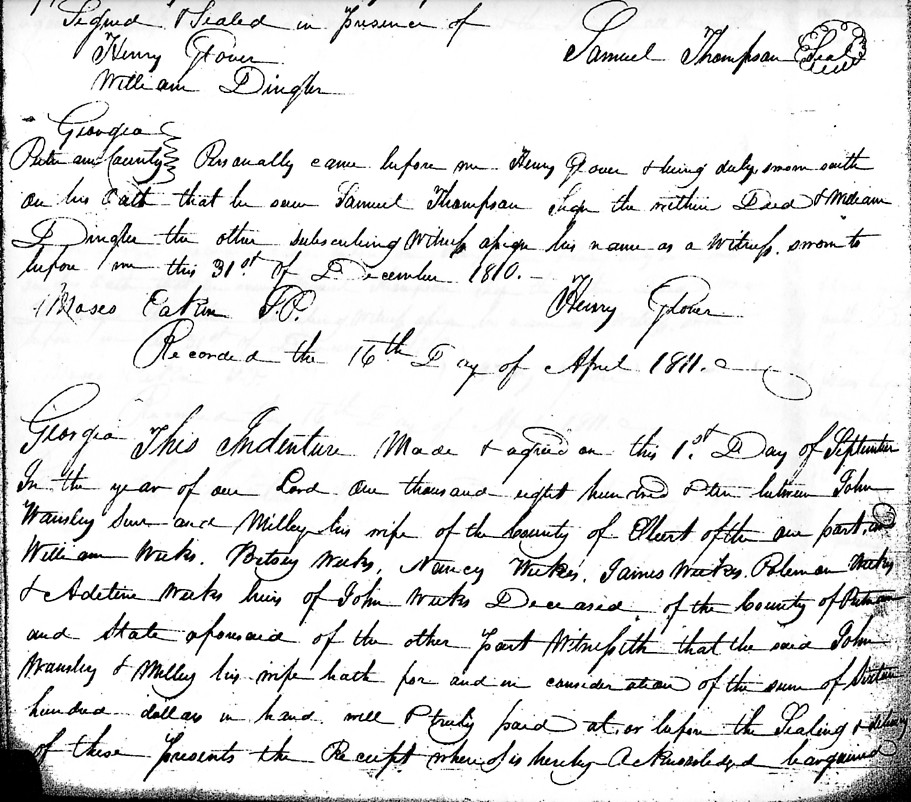 Signed & Sealed in presence of
Henry Glover Samuel Thompson Seal
William Dingler
Georgia
Putnam County Personally came before me Henry Glover & being duly sworn saith
on his Oath that he saw Samuel Thompson Sign the within Deed & William
Dingler the other subscribing Witness assign his name as a Witness. sworn to
before me this 31st of December 1810.
Moses Eakin J.P. Henry Glover
Recorded the 16th Day of April 1811.
Georgia This Indenture Made & agreed on this 1st Day of September
In the year of our Lord One thousand eight hundred & ten between John
Wansley Senr and Milley his wife of the County of Elbert of the one part, and
William Weeks, Betsey Weeks, Nancy Weekes, James Weekes, Poleman Weeks
& Adeline Weeks heirs of John Weeks Deceased of the County of Putnam
and State aforesaid of the other part Witnesseth that the said John
Wansley & Milley his wife hath for and in consideration of the sum of Sixteen
hundred dollars in hand well & truly paid at or before the Sealing & delivery
of these presents the Receipt whereof is hereby Acknowledged bargained